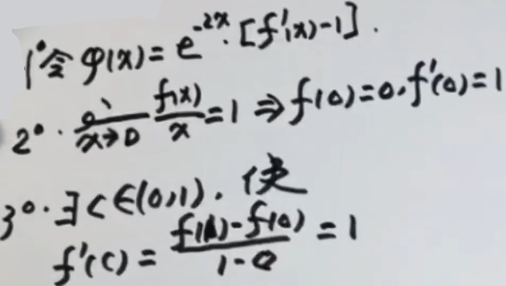 1° 令 φ(x) = e^{-2x}·[f'(x)-1].
2°. lim_{x→0} f(x)/x = 1 ⇒ f(0)=0, f'(0)=1
3°. ∃ c ∈(0,1). 使
f'(c) = (f(1)-f(0))/(1-0) = 1